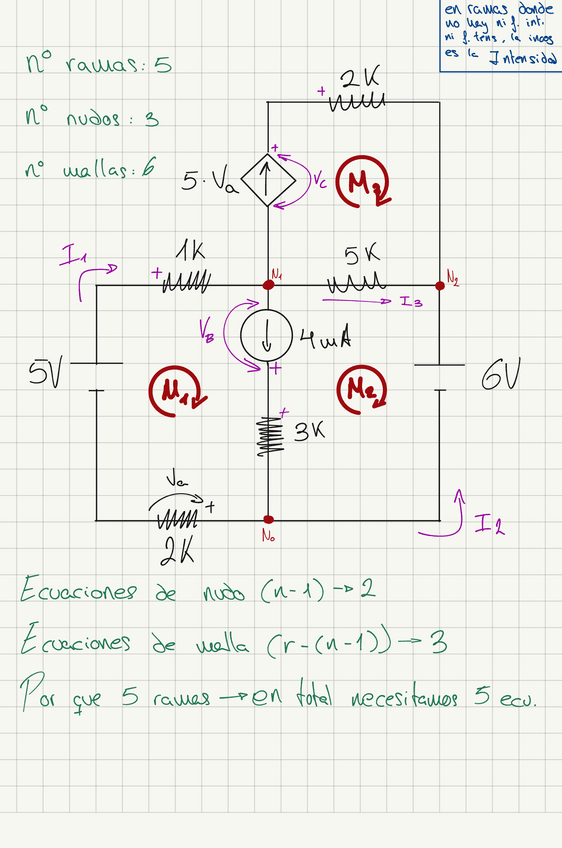 en ramas donde
no hay ni f. int.
ni f. tens, la incog
es la Intensidad
nº ramas: 5
nº nudos: 3
nº mallas: 6
2K
+
+
5·Va
Vc
M3
I1
1K
+
N1
5K
N2
I3
VB
4mA
+
5V
M1
M2
6V
+
3K
Va
+
2K
N0
I2
Ecuaciones de nudo (n-1) → 2
Ecuaciones de malla (r-(n-1)) → 3
Por que 5 ramas → en total necesitamos 5 ecu.